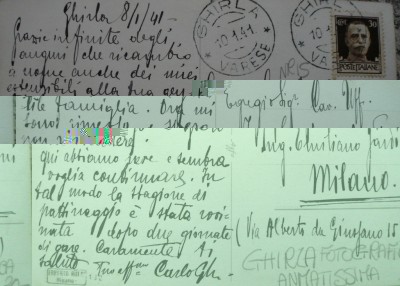 Ghirla 8/1/41 -
Grazie infinite degli
auguri che ricambio
a nome anche dei miei
estensibili alla tua gen
tile famiglia.
qui abbiamo neve e sembra
voglia continuare. in
tal modo la stagione di
pattinaggio è stata rovi-
nata dopo due giornate
di gare. Caramente ti
saluto
Tuo aff.mo Carlo Gh.
GHIRLA
10.1.41
VARESE
GHIRLA
10.1.41
VARESE
30
POSTE ITALIANE
N°15
Egregio Sig. Cav. Uff.
Ing.
Milano.
(Via Alberto da Giussano 15
GHIRLA FOTOGRAFICA
ANIMATISSIMA